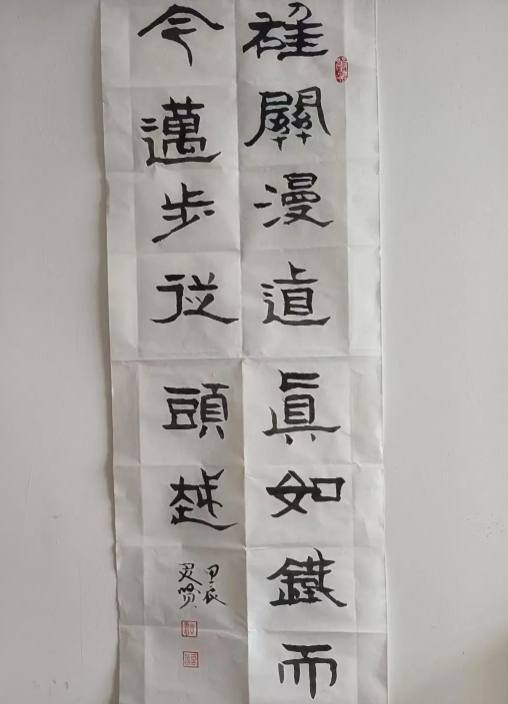 雄關漫道真如鐵而
今邁步從頭越
甲辰